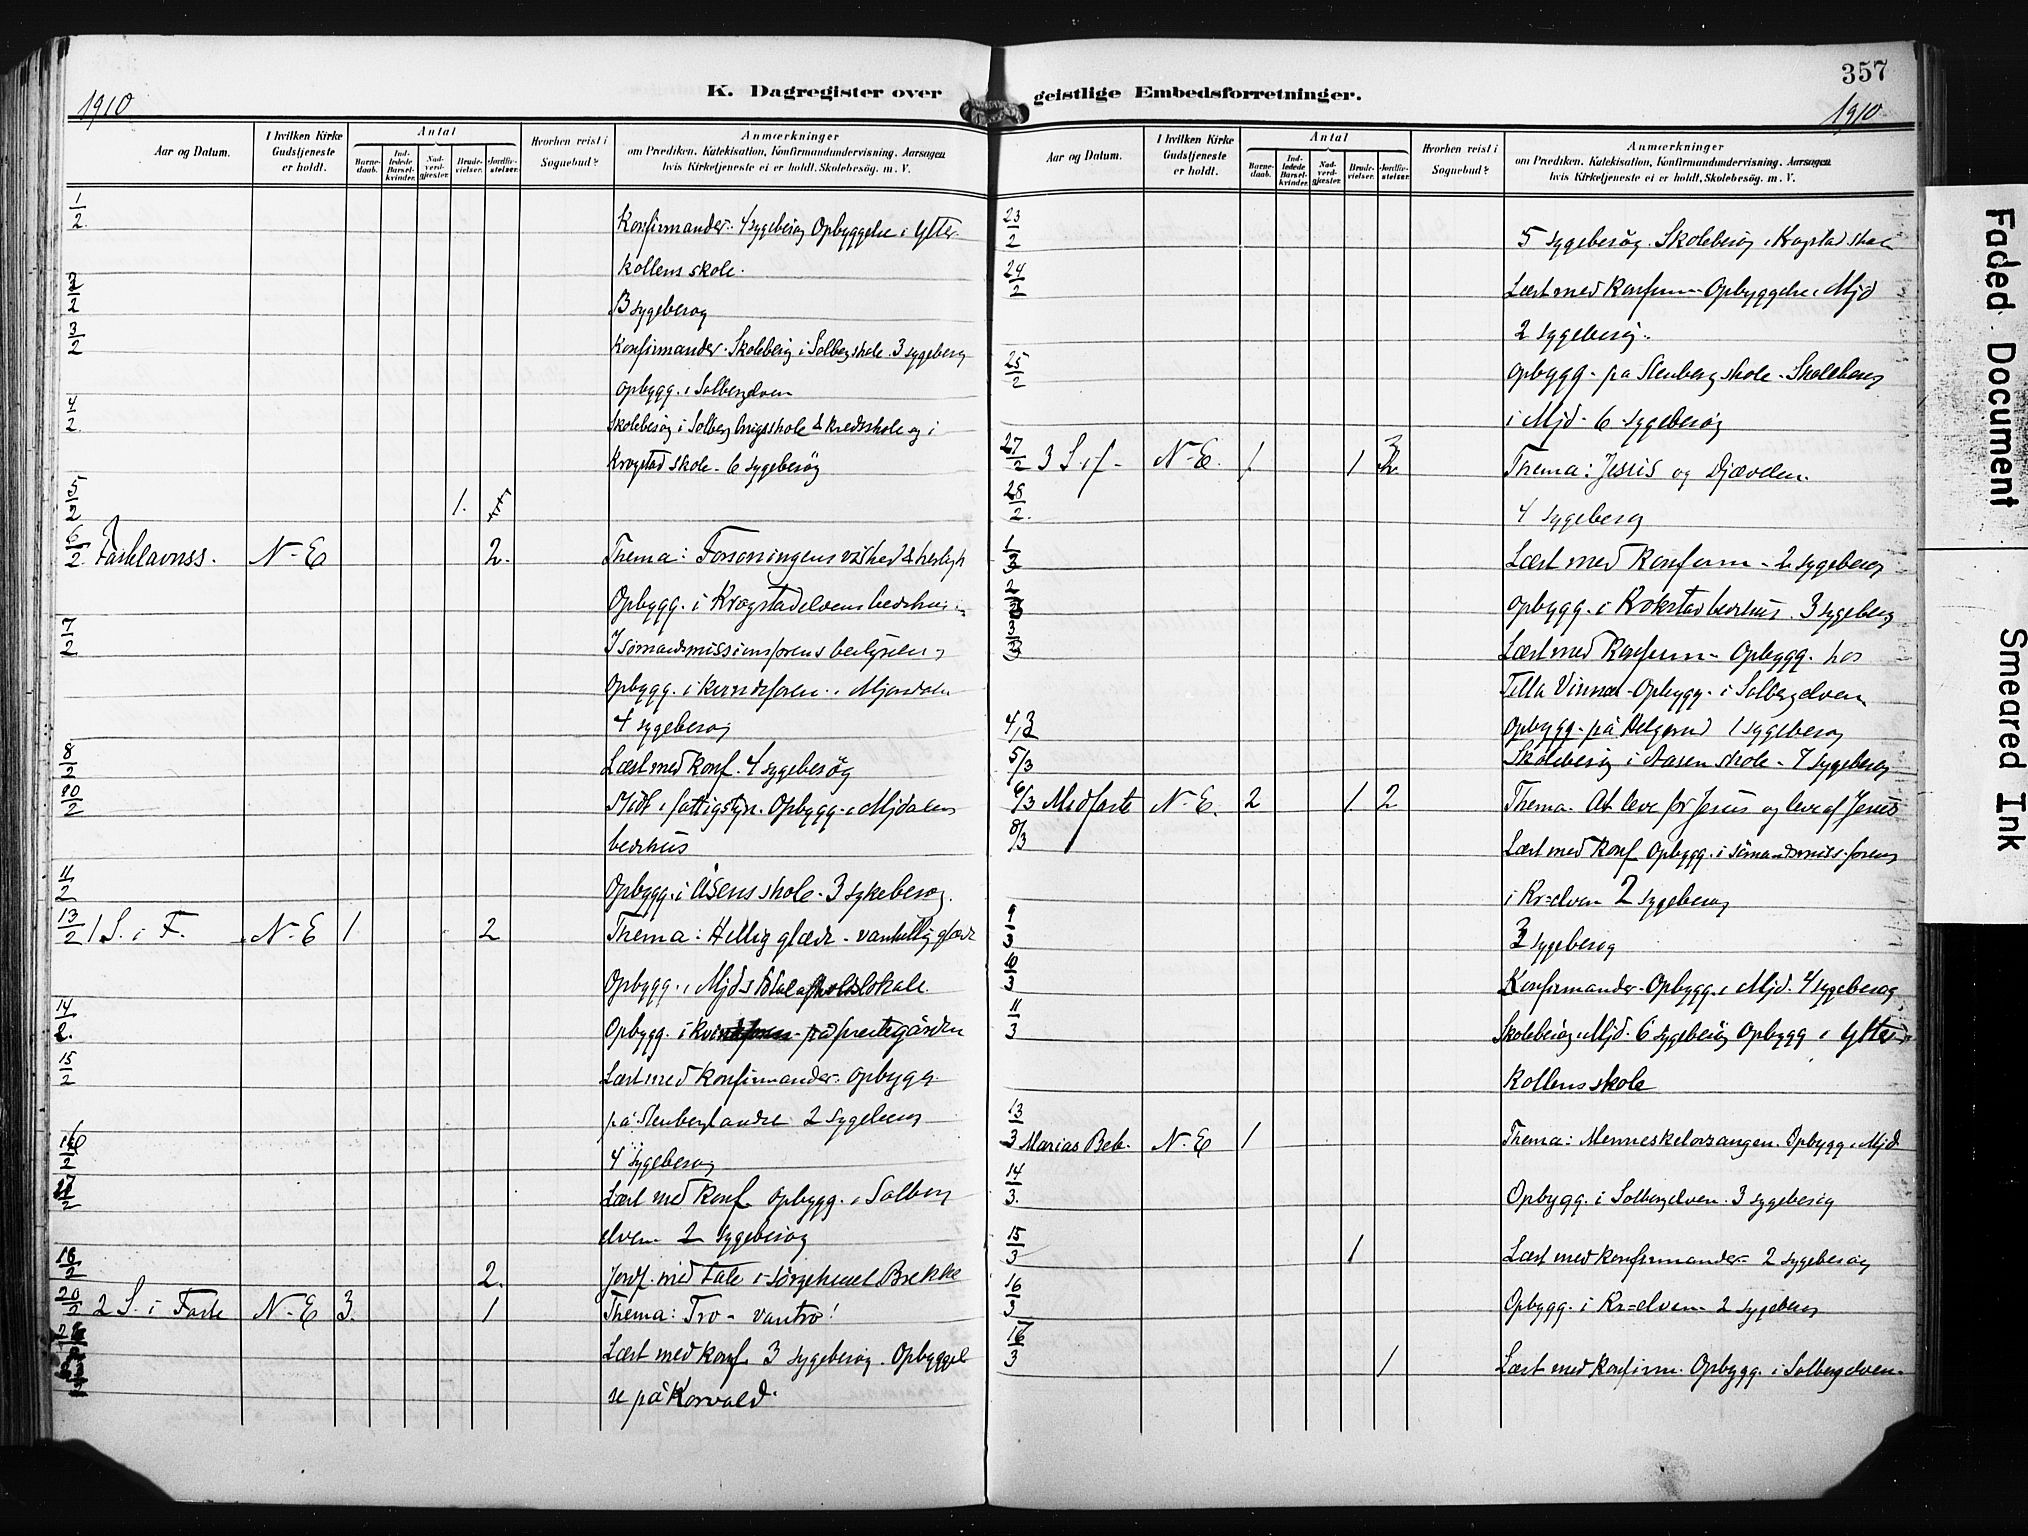 357
1910
K. Dagregister over
geistlige Embedsforretninger.
1910
Aar og Datum.
I hvilken Kirke Gudstjeneste er holdt.
Antal
Barne-daab.
Ind-ledede Barsel-kvinder.
Nad-verd-gjæster.
Brude-vielser.
Jordfæ-stelser.
Hvorhen reist i Sognebud?
Anmærkninger
om Prædiken, Katekisation, Konfirmandundervisning, Aarsagen
hvis Kirketjeneste ei er holdt, Skolebesøg, m. V.
1/2 Konfirmander. 4 sygebesøg Opbyggelse i Ytter
kollens skole.
2/2 3 sygebesøg
3/2 Konfirmander. Skolebesøg i Solberg skole. 3 sygebesøg
opbygg. i Solbergelven
4/2. Skolebesøg i Solberg brugsskole & kredsskole og i
Krogstad skole. 6 sygebesøg
5/2 1.
6/2. Fastelavnss. N-E 2. Thema: Forsoningens vished & herligh
Opbygg. i Krogstadelvens bedehus
7/2 I sømandsmissionsforens bestyrelse
opbygg. i kvindeforen. i Mjøndalen
4 sygebesøg
8/2 Læst med konf. 4 sygebesøg
10/2 Mødt i fattigstyr. Opbygg. i Mjdalens
bedehus
11/2 Opbygg. i Åsens skole. 3 sykebesøg.
13/2 1 S. i F. N-E 1 2 Thema: Hellig glæde - vanhellig glæde
Opbygg. i Mjds totalafholdslokale.
14/2. Opbygg. i på prestegården
15/2 Læst med konfirmander. Opbygg
på Stenberg 2 sygebesøg
16/2 4 sygebesøg
17/2 Læst med konf. opbygg. i Solberg
elven. 2 sygebesøg
18/2 2. Jordf. med tale i sørgehuset Brekke
20/2 2 S. i Faste N-E 3. 1 Thema: Tro - vantro!
Læst med konf. 3 sygebesøg. Opbyggel
se på Korvald.
Aar og Datum.
I hvilken Kirke Gudstjeneste er holdt.
Antal
Barne-daab.
Ind-ledede Barsel-kvinder.
Nad-verd-gjæster.
Brude-vielser.
Jordfæ-stelser.
Hvorhen reist i Sognebud?
Anmærkninger
om Prædiken, Katekisation, Konfirmandundervisning, Aarsagen
hvis Kirketjeneste ei er holdt, Skolebesøg, m. V.
23/2 5 sygebesøg. Skolebesøg i Krogstad skole
24/2 Læst med konfirm. Opbyggelse i Mjd
2 sygebesøg.
25/2 opbygg. på Stenberg skole. Skolebesøg
i Mjd. 6 sygebesøg
27/2 3 S. i f. N-E. 1 1 3 Thema: Jesus og Djævelen.
28/2. 4 sygebesøg
1/3 Læst med konfirm. 2 sygebesøg
2/3 opbygg. i Krokstad bedehus. 3 sygebesøg
3/3 Læst med konfirm. Opbygg. hos
Opbygg. i Solbergelven
4/3 opbygg. på Helgerud 1 sygebesøg
5/3 Skolebesøg i Aasen skole. 7 sygebesøg
6/3 Midfaste N-E. 2 1 2 Thema. At leve for Jesus og leve af Jesus
8/3 Læst med konf Opbygg. i sømandsmiss. forens
i Kr=elven 2 sygebesøg
9/3 3 sygebesøg
10/3 Konfirmander. Opbygg. i Mjd. 4 sygebesøg
11/3 Skolebesøg i Mjd. 6 sygebesøg Opbygg i Ytter
kollens skole
13/3 Marias Beb. N-E 1 Thema: Menneskelovsangen. Opbygg. i Mjd
14/3. Opbygg. i Solbergelven. 3 sygebesøg
15/3 1 Læst med konfirmander. 2 sygebesøg
16/3 Opbygg. i Kr=elven. 2 sygebesøg
16/3 1 Læst med konfirm. Opbygg. i Solbergelven.
Faded Document
Smeared Ink